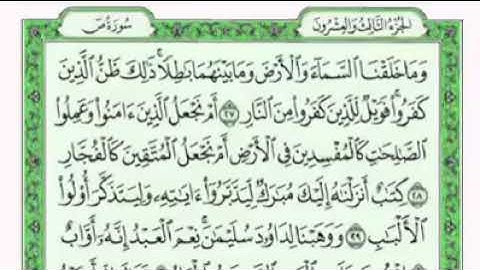 الجُزْءُ الثَّالِثُ وَالعِشْرُونَ
سُورَةُ صٓ
وَمَا خَلَقْنَا ٱلسَّمَآءَ وَٱلْأَرْضَ وَمَا بَيْنَهُمَا بَـٰطِلًا ۚ ذَٰلِكَ ظَنُّ ٱلَّذِينَ
كَفَرُوا۟ ۚ فَوَيْلٌ لِّلَّذِينَ كَفَرُوا۟ مِنَ ٱلنَّارِ ٢٧ أَمْ نَجْعَلُ ٱلَّذِينَ ءَامَنُوا۟ وَعَمِلُوا۟
ٱلصَّـٰلِحَـٰتِ كَٱلْمُفْسِدِينَ فِى ٱلْأَرْضِ أَمْ نَجْعَلُ ٱلْمُتَّقِينَ كَٱلْفُجَّارِ
٢٨ كِتَـٰبٌ أَنزَلْنَـٰهُ إِلَيْكَ مُبَـٰرَكٌ لِّيَدَّبَّرُوٓا۟ ءَايَـٰتِهِۦ وَلِيَتَذَكَّرَ أُو۟لُوا۟
ٱلْأَلْبَـٰبِ ٢٩ وَوَهَبْنَا لِدَاوُۥدَ سُلَيْمَـٰنَ ۚ نِعْمَ ٱلْعَبْدُ ۖ إِنَّهُۥٓ أَوَّابٌ